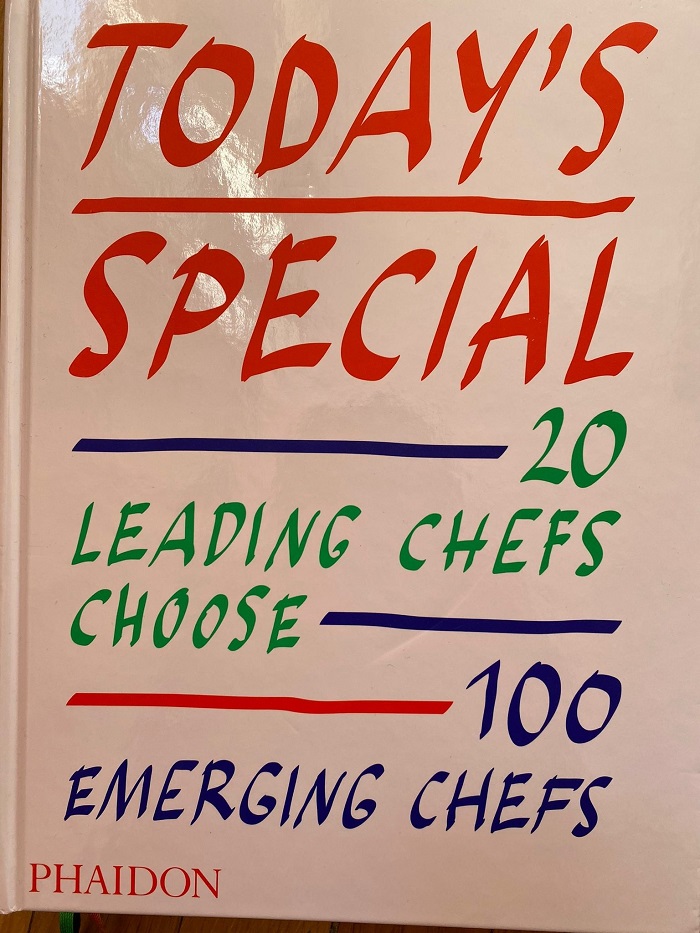 TODAY'S
SPECIAL
20
LEADING CHEFS
CHOOSE
100
EMERGING CHEFS
PHAIDON